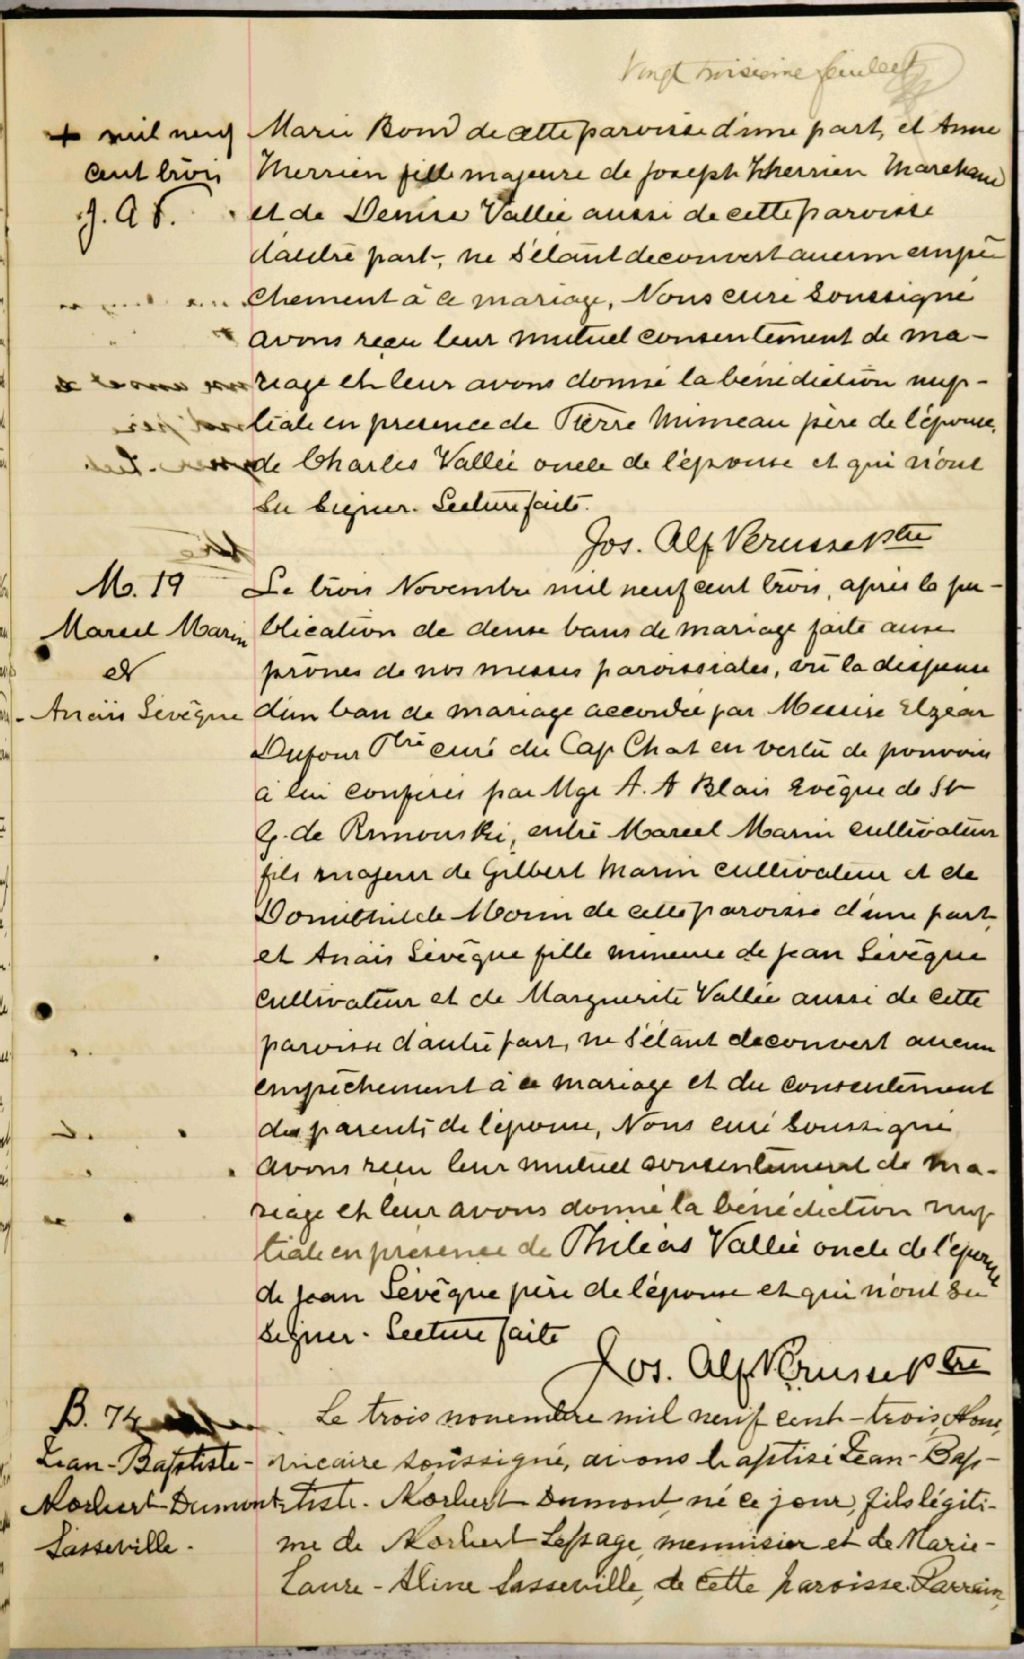 Vingt troisième feuillet
+ mil neuf
cent trois
J. A V.
Marie Bond de cette paroisse d'une part, et Anne
Therrien fille majeure de Joseph Therrien Marchand
et de Denise Vallée aussi de cette paroisse
d'autre part, ne s'étant decouvert aucun empê
chement à ce mariage, Nous curé soussigné
avons reçu leur mutuel consentement de ma-
riage et leur avons donné la bénédiction nup-
tiale en presence de Pierre Mimeau père de l'épouse,
de Charles Vallée oncle de l'épouse et qui n'ont
su signer. Lecture faite.
Jos. Alf Verusse Ptre
M. 19
Marcel Marin
et
Anaïs Lévêque
Le trois Novembre mil neuf cent trois, après la pu-
blication de deux bans de mariage faite aux
prônes de nos messes paroissiales, vu la dispense
d'un ban de mariage accordée par Messire Elzéar
Dufour Ptre curé du Cap Chat en vertu de pouvoirs
à lui conférés par Mgr A. A Blais Evêque de St
G. de Rimouski, entre Marcel Marin cultivateur
fils majeur de Gilbert Marin cultivateur et de
Domithilde Morin de cette paroisse d'une part,
et Anaïs Lévêque fille mineure de Jean Lévêque
cultivateur et de Marguerite Vallée aussi de cette
paroisse d'autre part, ne s'étant decouvert aucun
empêchement à ce mariage et du consentement
des parents de l'épouse, Nous curé soussigné
avons reçu leur mutuel consentement de ma-
riage et leur avons donné la bénédiction nup
tiale en présence de Philéas Vallée oncle de l'épouse
de Jean Lévêque père de l'épouse et qui n'ont su
signer. Lecture faite
Jos. Alf Verusse Ptre
B. 74
Jean-Baptiste-
Norbert Dumont
Lasseville.
Le trois novembre mil neuf cent-trois, Nous,
vicaire soussigné, avons baptisé Jean-Bap-
tiste-Norbert Dumont, né ce jour, fils légiti-
me de Norbert Lepage, menuisier et de Marie-
Laure-Aline Lasseville, de cette paroisse. Parrain,